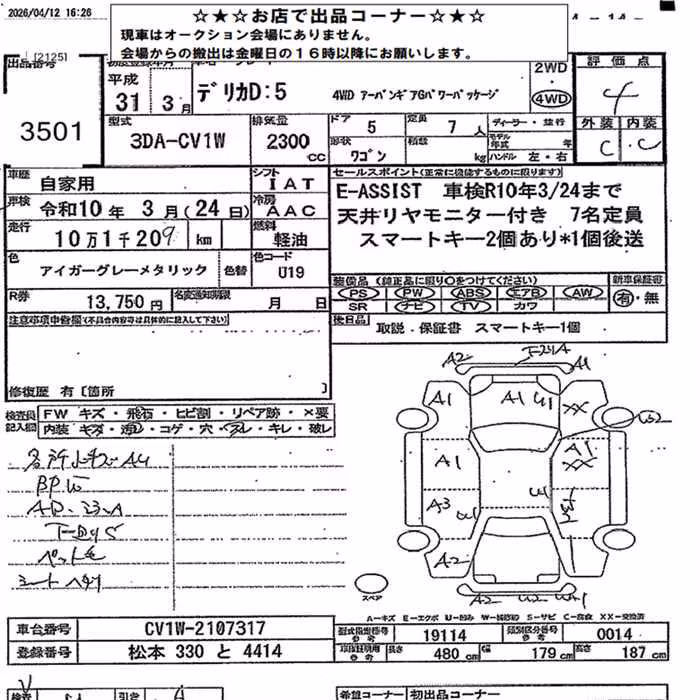 2026/04/12 16:26
☆★☆お店で出品コーナー☆★☆
現車はオークション会場にありません。
会場からの搬出は金曜日の16時以降にお願いします。
[2125]
出品番号
3501
平成
31 3月
デリカD:5
4WD アーバンギアGパワーパッケージ
2WD
4WD
評価点
4
外装 内装
C C
型式
3DA-CV1W
排気量
2300
CC
ドア
5
定員
7 人
形状
ワゴン
積載
kg
ディーラー・並行
モデル年式 年
ハンドル 左・右
車歴
自家用
シフト
IAT
車検
令和10年 3月(24日)
冷房
AAC
走行
10万1千209 km
燃料
軽油
色
アイガーグレーメタリック
色替
色コード
U19
セールスポイント(正常に機能するものに限ります)
E-ASSIST 車検R10年3/24まで
天井リヤモニター付き 7名定員
スマートキー2個あり*1個後送
R券
13,750円
名変通知期限
月 日
装備品 (純正品に限り○をつけてください)
PS PW ABS エアB AW
SR ナビ TV カワ
新車保証書
有・無
後日品
取説・保証書 スマートキー1個
注意事項申告欄(不具合内容等は具体的に記入して下さい)
修復歴 有[箇所 ]
検査員記入欄
FW キズ・飛石・ヒビ割・リペア跡・×要
内装 キズ・汚れ・コゲ・穴・スレ・キレ・破レ
A2 A1
A1 A1 U1 XX
A1 A1 XX
A3
A2
A2 U2
スペア
A-キズ E-エクボ U-凹み W-補修跡 S-サビ C-腐食 XX-交換済
車台番号
CV1W-2107317
登録番号
松本 330 と 4414
型式指定番号
参考
19114
類別区分番号
参考
0014
車検証明用
参考
長さ
480 cm
幅
179 cm
高さ
187 cm
希望コーナー
初出品コーナー